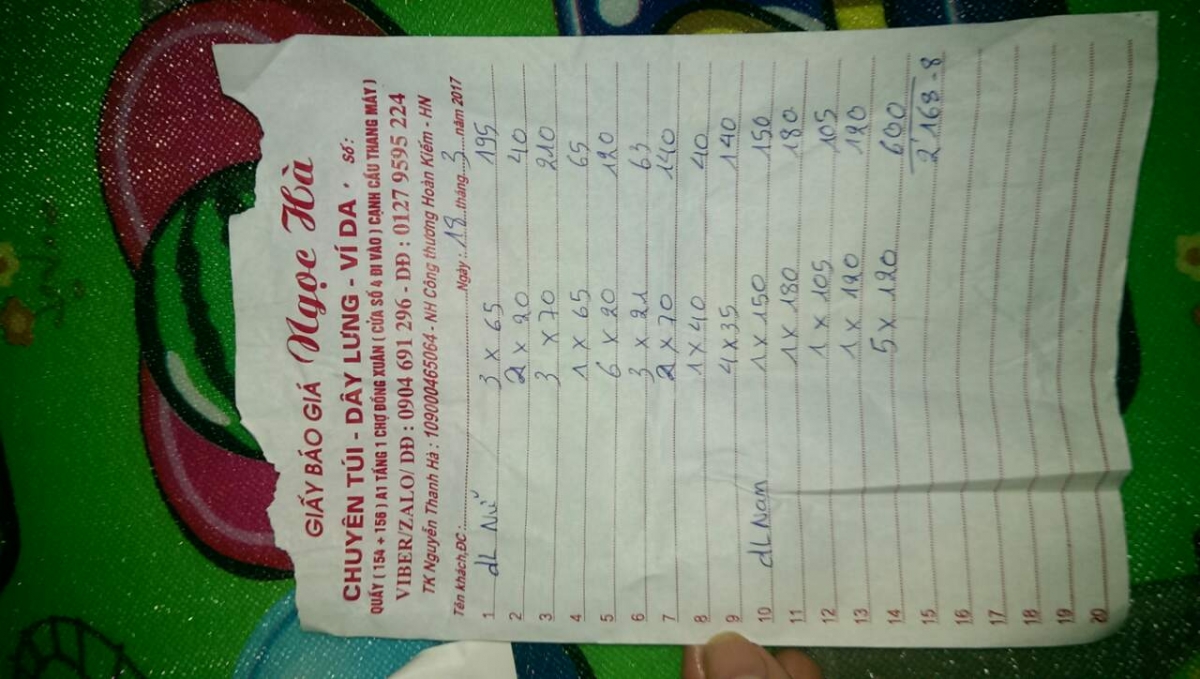 GIẤY BÁO GIÁ Ngọc Hà
CHUYÊN TÚI - DÂY LƯNG - VÍ DA. SỐ:
QUẦY ( 15A + 15B ) A1 TẦNG 1 CHỢ ĐỒNG XUÂN ( CỬA SỐ 4 ĐI VÀO ) CẠNH CẦU THANG MÁY )
VIBER/ZALO/ DĐ : 0904 691 296 - DĐ : 0127 9595 224
TK Nguyễn Thanh Hà : 109000465064 - NH Công thương Hoàn Kiếm - HN
Tên khách,ĐC :....................Ngày : 18 ...tháng...3...năm 2017
1 dL Nữ 3 x 65 195
2 2 x 20 40
3 3 x 70 210
4 1 x 65 65
5 6 x 20 120
6 3 x 21 63
7 2 x 70 140
8 1 x 40 40
9 4 x 35 140
10 dL Nam 1 x 150 150
11 1 x 180 180
12 1 x 105 105
13 1 x 120 120
14 5 x 120 600
15 2'168-8
16
17
18
19
20